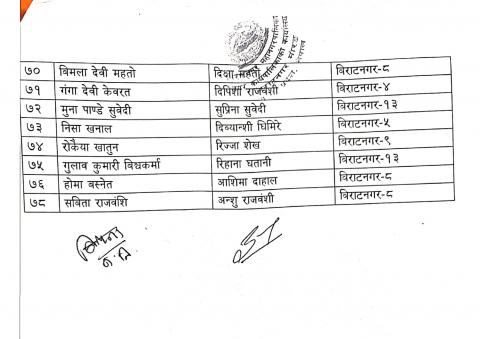 ७० विमला देवी महतो दिक्षा महतो विराटनगर-८
७१ गंगा देवी केवरत दिपिशी राजवंशी विराटनगर-४
७२ मुना पाण्डे सुवेदी सुप्रिना सुवेदी विराटनगर-१३
७३ निसा खनाल दिव्यान्शी घिमिरे विराटनगर-५
७४ रोकैया खातुन रिज्जा शेख विराटनगर-९
७५ गुलाव कुमारी विश्वकर्मा रिहाना घतानी विराटनगर-१३
७६ होमा बस्नेत आशिमा दाहाल विराटनगर-८
७८ सविता राजवंशि अन्शु राजवंशी विराटनगर-८